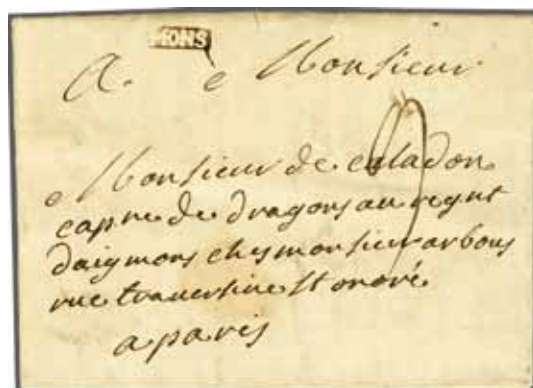 MONS
A Monsieur
Monsieur de caladon
capne de dragons au regnt
daigmons ches monsieur arbous
rue traversine st onoré
a paris